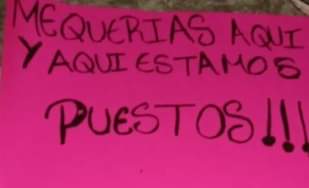 MEQUERIAS AQUI
Y AQUI ESTAMOS
PUESTOS!!!